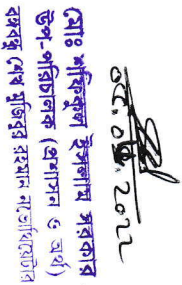 ০৮.০৯.২০২২
মোঃ শফিকুল ইসলাম সরকার
উপ-পরিচালক (প্রশাসন ও অর্থ)
বঙ্গবন্ধু শেখ মুজিবুর রহমান নভোথিয়েটার